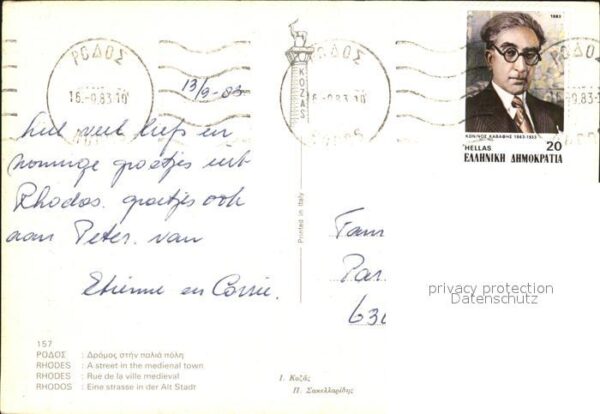 ΡΟΔΟΣ
16.-9.83.19
ΡΟΔΟΣ
16.-9.83.19
9.83
1983
ΚΩΝ/ΝΟΣ ΚΑΒΑΦΗΣ 1863-1933
HELLAS 20
ΕΛΛΗΝΙΚΗ ΔΗΜΟΚΡΑΤΙΑ
KOZAS
13/9-83
heel veel liefs en
zonnige groetjes uit
Rhodos. groetjes ook
aan Peter. van
Etienne en Corrie.
Printed in Italy
Fam
Par
privacy protection
Datenschutz
157
ΡΟΔΟΣ : Δρόμος στήν παλιά πόλη
RHODES : A street in the medienal town
RHODES : Rue de la ville medieval
RHODOS : Eine strasse in der Alt Stadt
Ι. Κοζάς
Π. Σακελλαρίδης